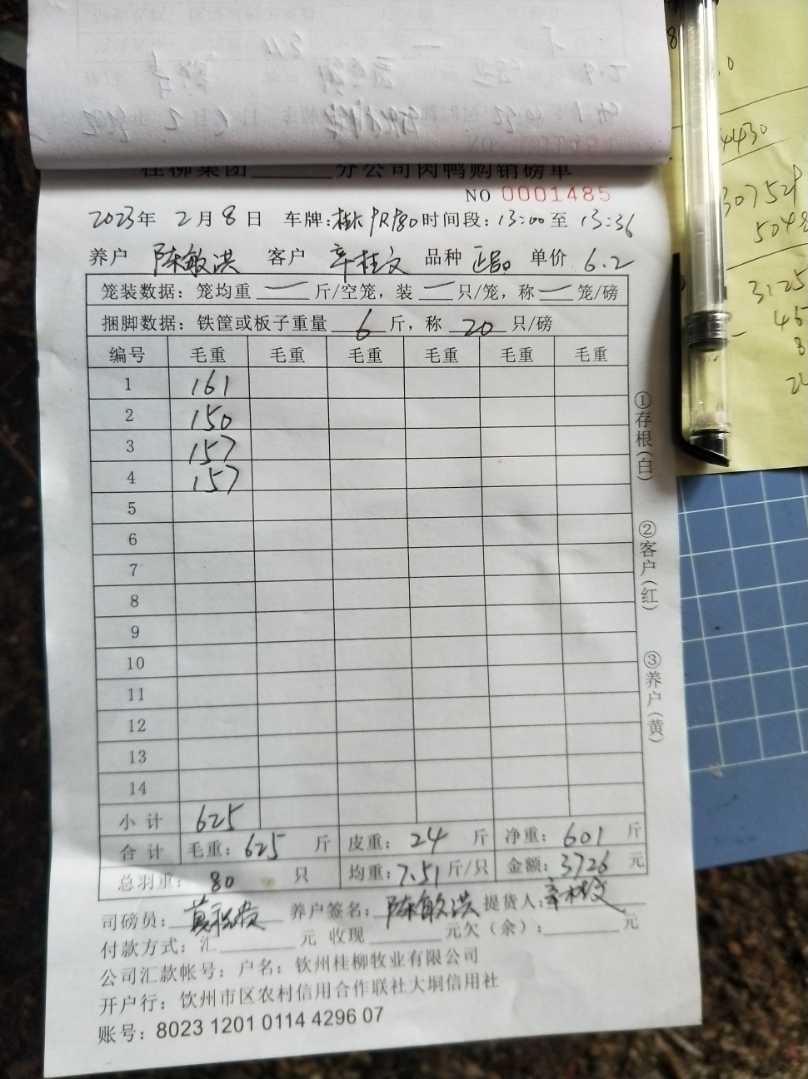 桂柳集团____分公司肉鸭购销磅单
NO 0001485
2023年 2月8日 车牌: 时间段:13:00至 13:36
养户 陈敏洪 客户 辛桂文 品种 正品 单价 6.2
笼装数据:笼均重 一 斤/空笼,装 一 只/笼,称 一 笼/磅
捆脚数据:铁筐或板子重量 6 斤,称 20 只/磅
编号 毛重 毛重 毛重 毛重 毛重 毛重
1 161
2 150
3 157
4 157
5
6
7
8
9
10
11
12
13
14
小计 625
合计 毛重:625 斤 皮重:24 斤 净重:601 斤
总羽重:80 只 均重:7.51斤/只 金额:3726 元
司磅员: 养户签名:陈敏洪 提货人:辛桂文
付款方式:汇____元 收现____元欠(余):____元
公司汇款帐号:户名:钦州桂柳牧业有限公司
开户行:钦州市区农村信用合作联社大垌信用社
账号:8023 1201 0114 4296 07
①存根(白) ②客户(红) ③养户(黄)
4430
307528
3125